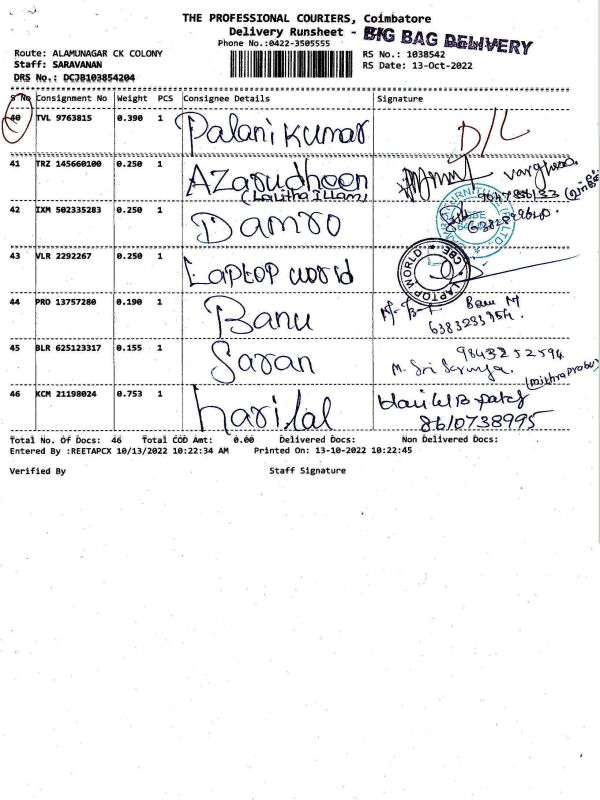 THE PROFESSIONAL COURIERS, Coimbatore
Delivery Runsheet - BIG BAG DELIVERY
Phone No.:0422-3505555
Route: ALAMUNAGAR CK COLONY
RS No.: 1038542
Staff: SARAVANAN
RS Date: 13-Oct-2022
DRS No.: DCJB103854204
S No Consignment No Weight PCS Consignee Details Signature
40 TVL 9763815 0.390 1 Palani Kumar D/L
41 TRZ 145660100 0.250 1 AZarudheen
(Lalitha Illam)
42 IXM 502335283 0.250 1 Damro
43 VLR 2292267 0.250 1 Laptop world
LAPTOP WORLD * CBE *
44 PRO 13757280 0.190 1 Banu Banu M
6383233954
45 BLR 625123317 0.155 1 Saran 9843252594
M. Sri Saranya.
(mithraprabu)
46 KCM 21198024 0.753 1 harilal
8610738995
Total No. Of Docs: 46 Total COD Amt: 0.00 Delivered Docs: Non Delivered Docs:
Entered By :REETAPCX 10/13/2022 10:22:34 AM Printed On: 13-10-2022 10:22:45
Verified By Staff Signature